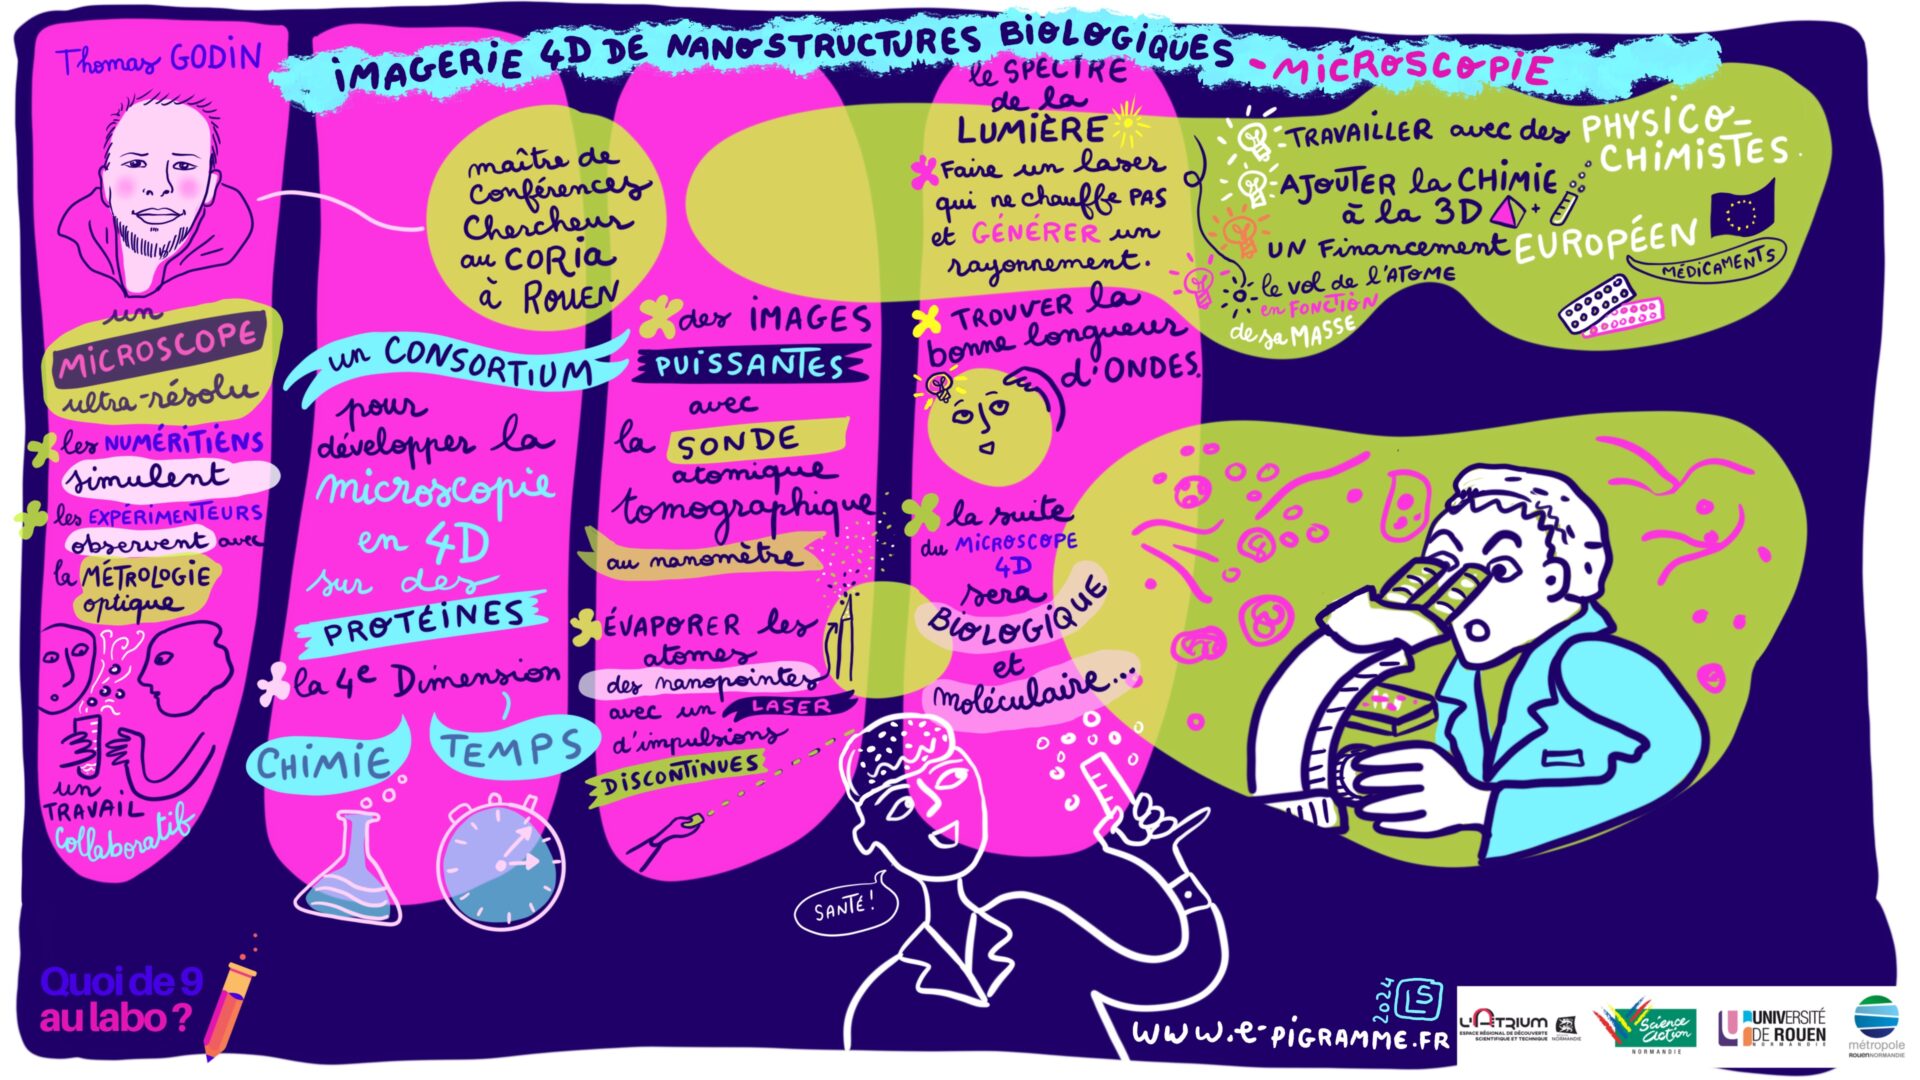 Thomas GODIN
iMAGERiE 4D DE NANOSTRUCTURES BiOLOGiQUES - MiCROSCOPiE
maître de
Conférences
Chercheur
au CORiA
à ROUEN
un
MiCROSCOPE
ultra-résolu
les NUMÉRiTiENS
simulent
les EXPÉRiMENTEURS
observent avec
la MÉTROLOGiE
optique
un
TRAVAiL
Collaboratif
un CONSORTiUM
pour
développer la
microscopie
en 4D
sur des
PROTÉiNES
la 4e Dimension
CHiMiE
TEMPS
des iMAGES
PUiSSANTES
avec
la SONDE
atomique
tomographique
au nanomètre
ÉVAPORER les
atomes
des nanopointes
avec un LASER
d'impulsions
DiSCONTiNUES
le SPECTRE
de la
LUMiÈRE
Faire un laser
qui ne chauffe PAS
et GÉNÉRER un
rayonnement.
TROUVER la
bonne longueur
d'ONDES.
la suite
du MiCROSCOPE
4D
sera
BiOLOGiQUE
et
moléculaire...
TRAVAiLLER avec des PHYSiCO-
CHiMiSTES.
AJOUTER la CHiMiE
à la 3D +
UN Financement EUROPÉEN
MÉDiCAMENTS
le vol de l'ATOME
en FONCTiON
de sa MASSE
SANTÉ!
Quoi de 9
au labo ?
2024
LS
www.e-PiGRAMME.FR
L'ATRIUM
ESPACE RÉGIONAL DE DÉCOUVERTE
SCIENTIFIQUE ET TECHNIQUE
NORMANDIE
Science
action
NORMANDIE
UNIVERSITÉ
DE ROUEN
NORMANDIE
métropole
ROUENNORMANDIE